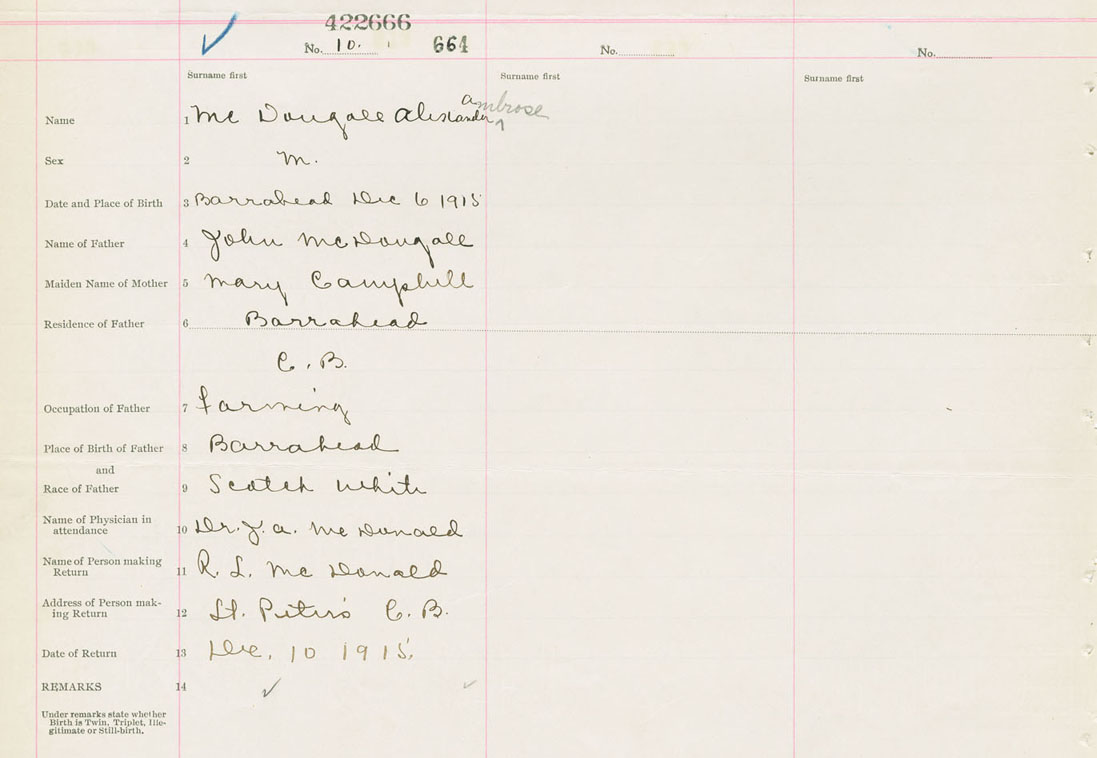 422666
No. 10. 664 No. No.
Surname first Surname first Surname first
Name 1 Mc Dougall Alexander Ambrose
Sex 2 M.
Date and Place of Birth 3 Barrahead Dec 6 1915
Name of Father 4 John McDougall
Maiden Name of Mother 5 Mary Campbell
Residence of Father 6 Barrahead
C. B.
Occupation of Father 7 farming
Place of Birth of Father 8 Barrahead
and
Race of Father 9 Scotch White
Name of Physician in
attendance 10 Dr. J. A. McDonald
Name of Person making
Return 11 R. L. McDonald
Address of Person mak-
ing Return 12 St. Peter's C. B.
Date of Return 13 Dec. 10 1915.
REMARKS 14
Under remarks state whether
Birth is Twin, Triplet, Ille-
gitimate or Still-birth.